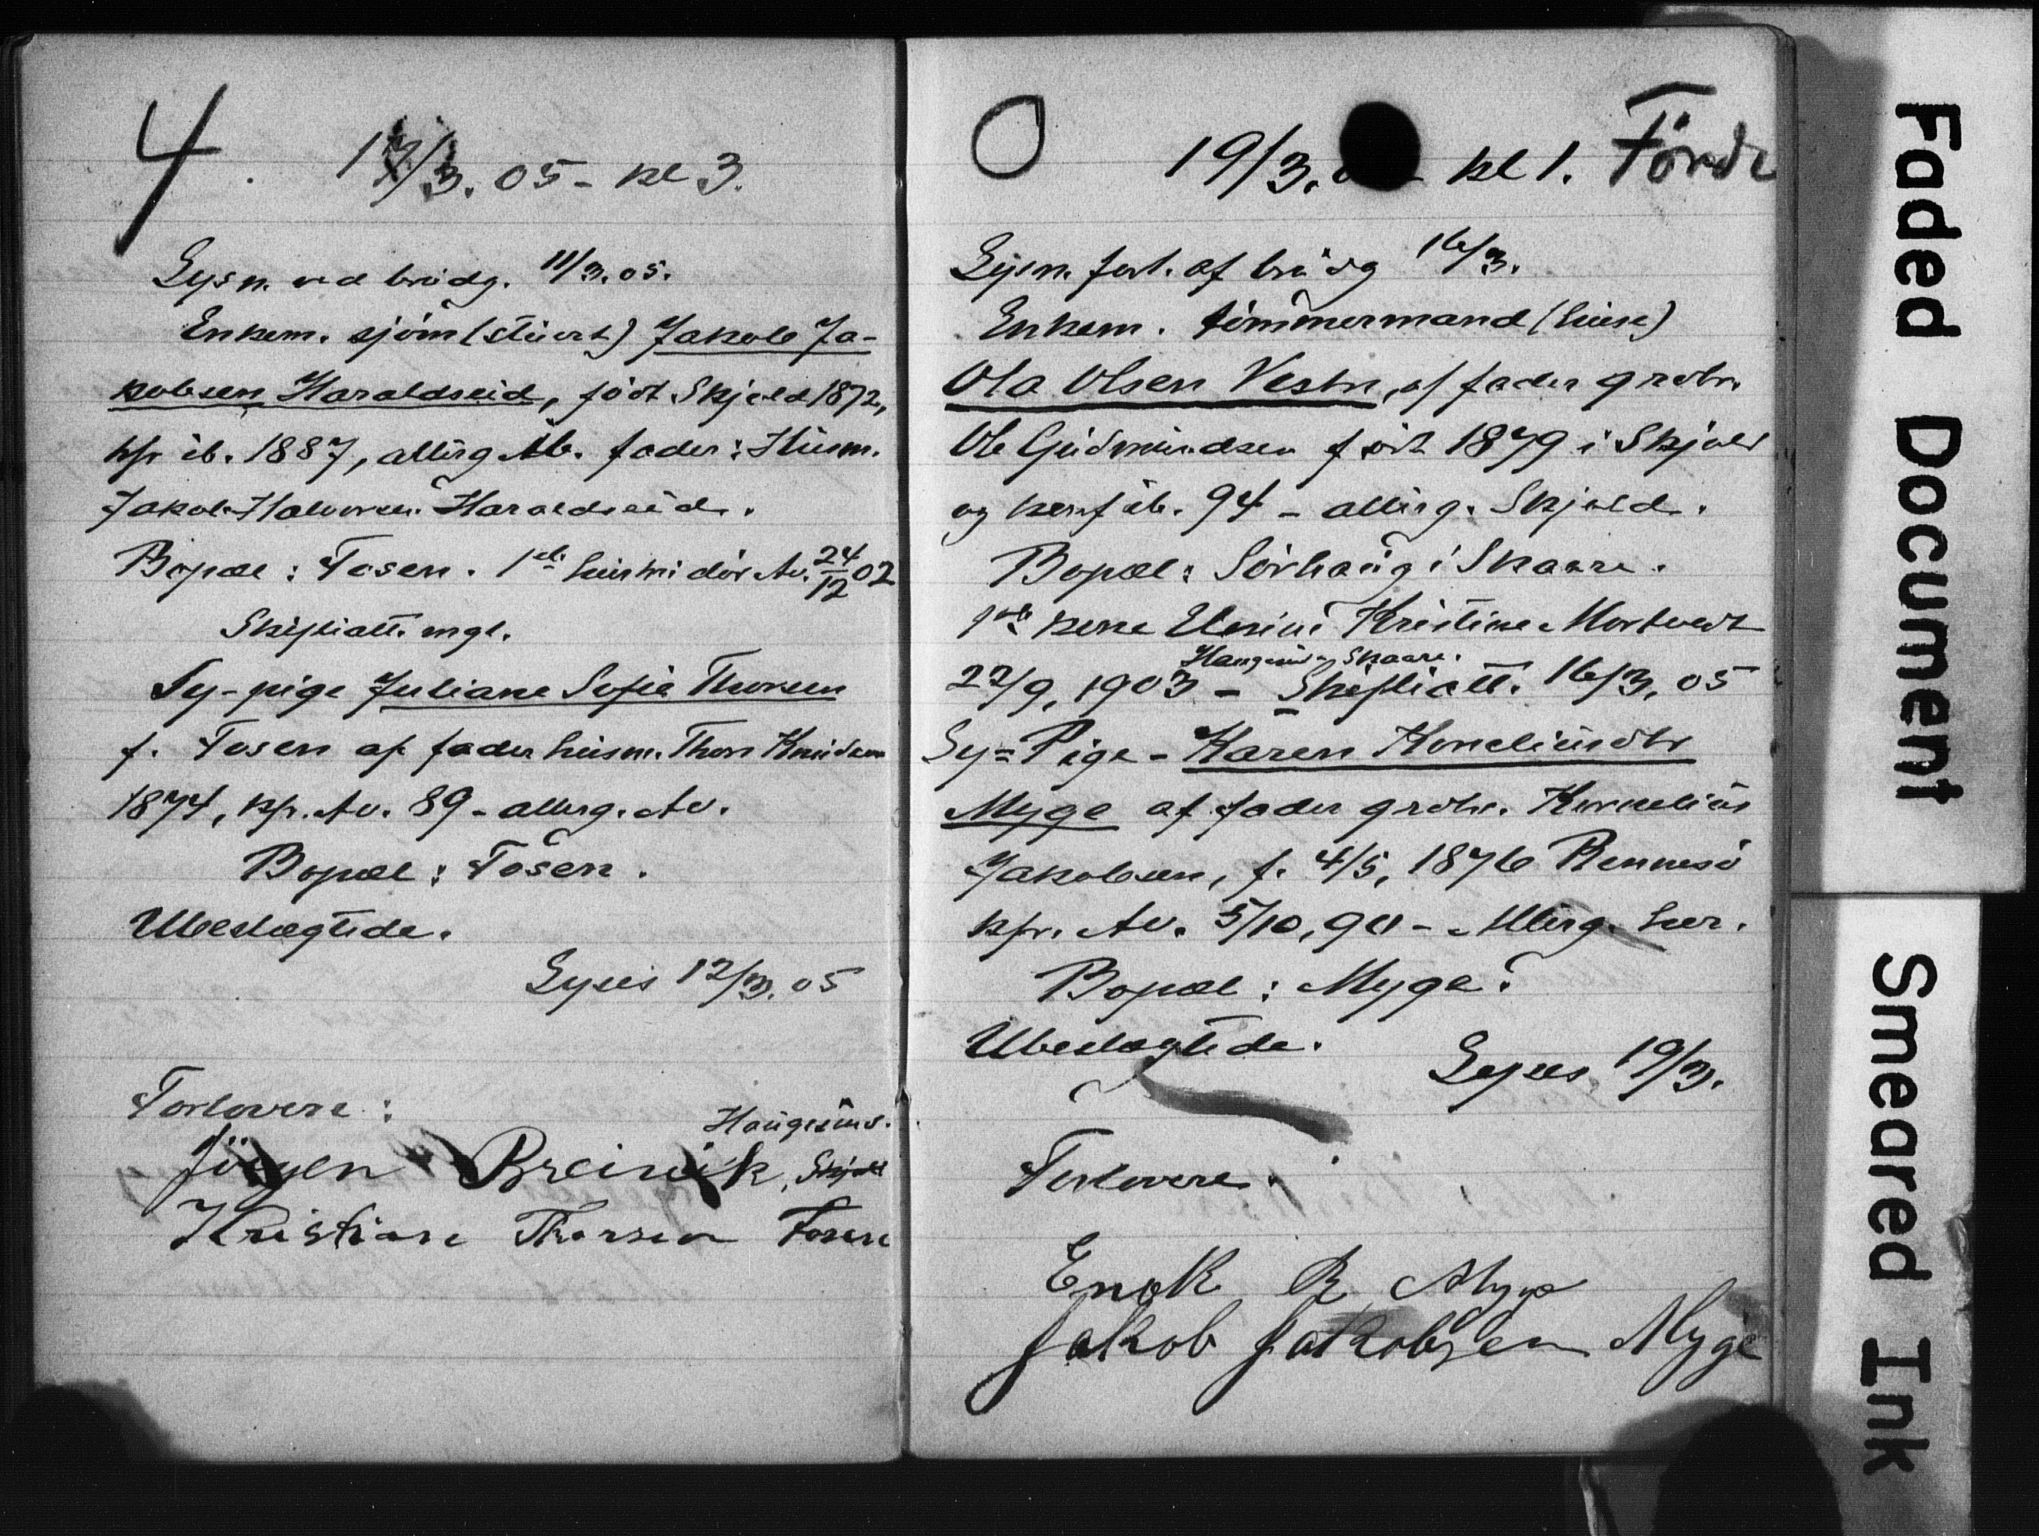 4. 17/3. 05 - kl 3.
Lysn. ved brudg. 11/3. 05.
Enkem. sjöm (stuert) Jakob Ja-
kobsen Haraldseid, födt Skjold 1872,
kfr ib. 1887, attest Av. fader: Husm.
Jakob Halvorsen Haraldseid.
Bopæl: Fosen. 1ste hustru död Av. 24/12 02
Skifteatt. mgl.
Sy-pige Juliane Sofie Thorsen
f. Fosen af fader husm. Thor Knudsen
1874, kfr. Av. 89 - attest. Av.
Bopæl: Fosen.
Ubeslægtede.
Lyses 12/3. 05
Forlovere:
Haugesund.
Jörgen Breivik, Skjold
Kristian Thorsen Fosen
O 19/3. kl 1. Förde
Lysn. forl. af brudg 16/3.
Enkem. tömmermand (huse)
Ola Olsen Vestre, af fader grdbr.
Ole Gudmundsen födt 1879 i Skjold
og konf ib. 94 - attest. Skjold.
Bopæl: Sörhaug i Skaare.
1ste kone Kristine Mortvedt
Haugesund Skaare.
22/9, 1903 - Skifteatt. 16/3. 05
Sy=Pige - Karen Korneliusdtr
Myge af fader grdbr. Kornelius
Jakobsen, f. 4/5, 1876 Rennesö
kfr. Av. 5/10, 90 - Attest. her.
Bopæl: Myge.
Ubeslægtede.
Lyses 19/3.
Forlovere.
Enok R Myge
Jakob Jakobsen Myge
Faded Document
Smeared Ink